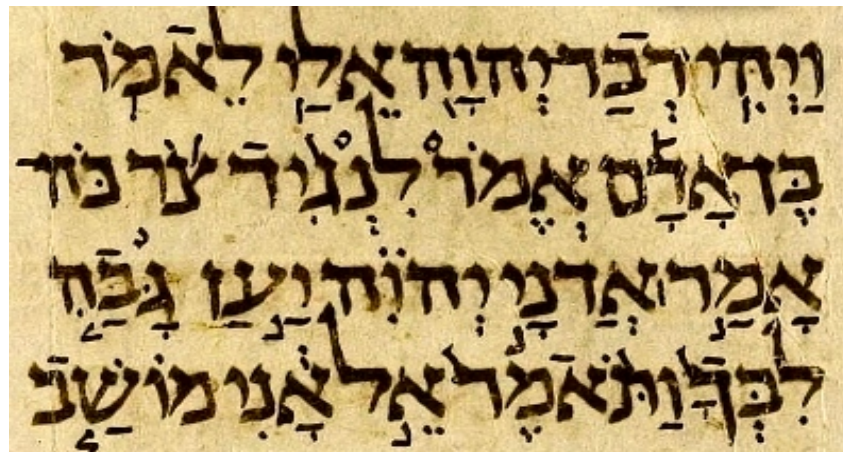 וַיְהִי דְבַר יְהוָה אֵלַי לֵאמֹר
בֶּן אָדָם אֱמֹר לִנְגִיד צֹר כֹּה
אָמַר אֲדֹנָי יְהוִה יַעַן גָּבַהּ
לִבְּךָ וַתֹּאמֶר אֵל אָנִי מוֹשַׁב